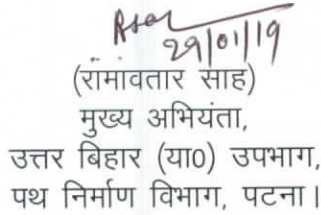 29/01/19
(रामावतार साह)
मुख्य अभियंता,
उत्तर बिहार (या0) उपभाग,
पथ निर्माण विभाग, पटना।